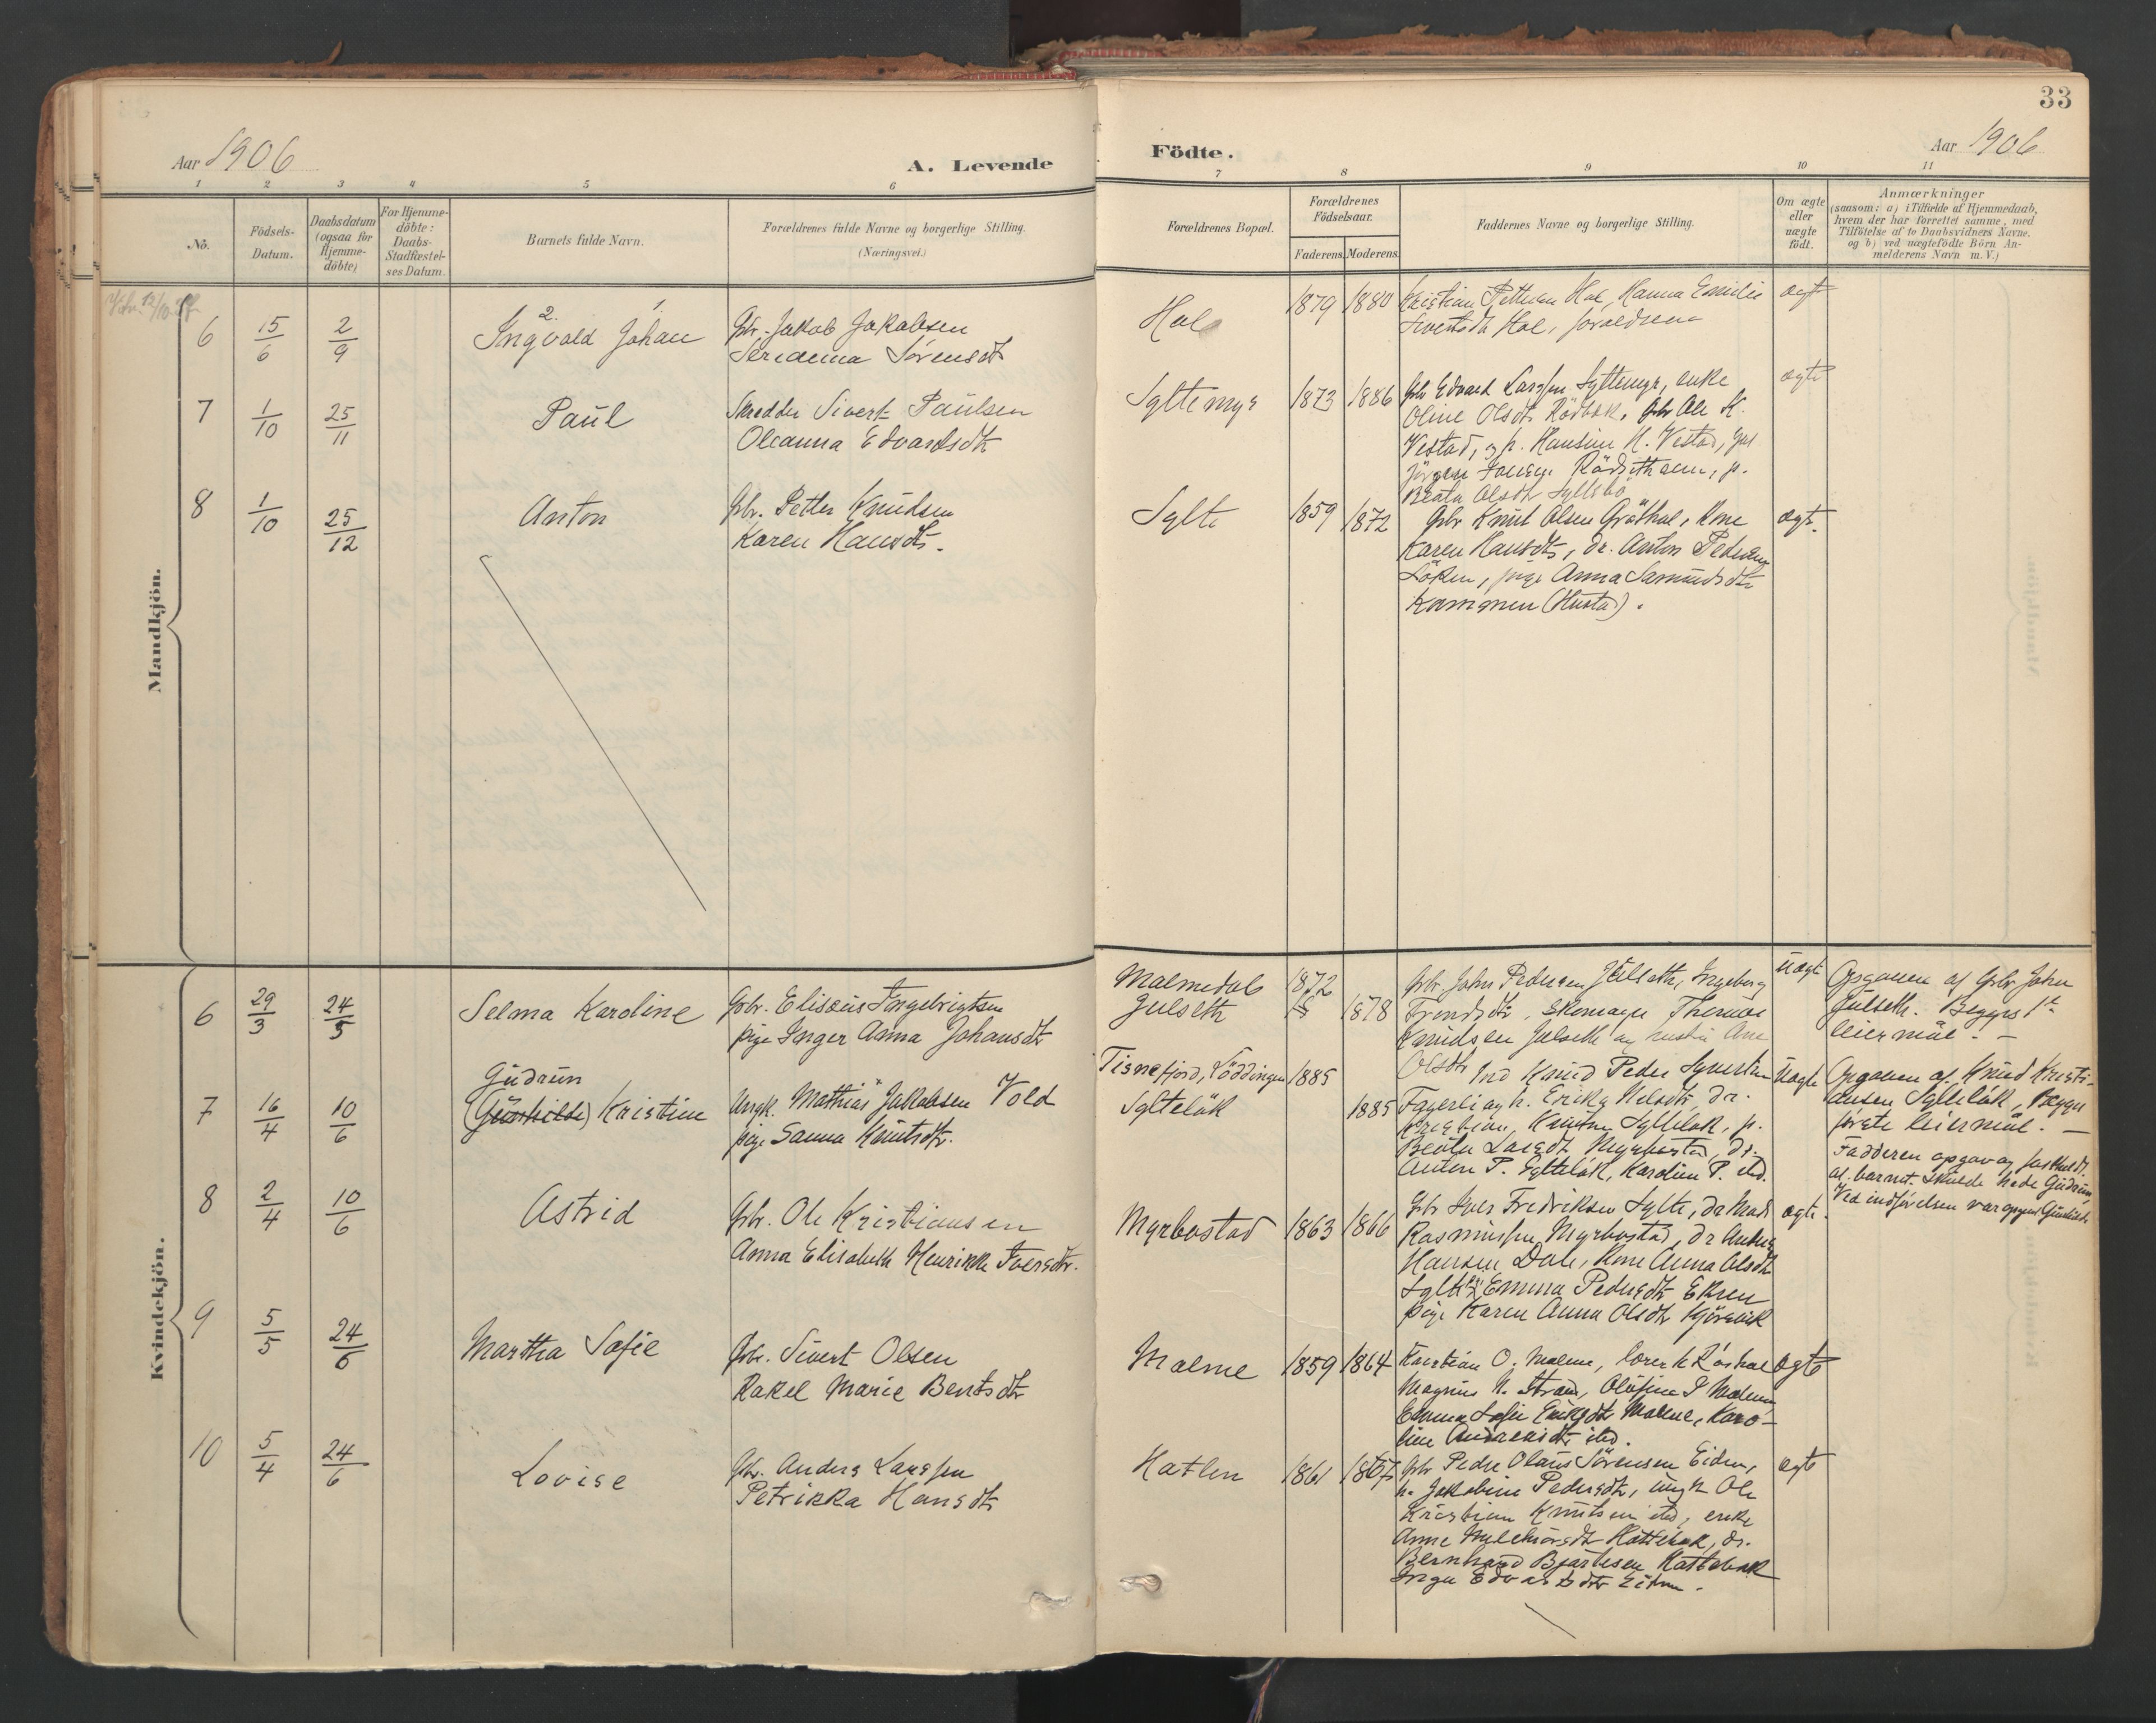 33
Aar 1906
A. Levende
Födte.
Aar 1906
1 2 3 4 5 6 7 8 9 10 11
No.
Födsels-
Datum.
Daabsdatum
(ogsaa for
Hjemme-
döbte)
For Hjemme-
döbte:
Daabs-
Stadfæstel-
ses Datum.
Barnets fulde Navn.
Forældrenes fulde Navne og borgerlige Stilling.
(Næringsvei.)
Forældrenes Bopæl.
Forældrenes
Födselsaar.
Faderens. Moderens.
Faddernes Navne og borgerlige Stilling.
Om ægte
eller
uægte
födt.
Anmærkninger
(saasom: a) i Tilfælde af Hjemmedaab,
hvem der har forrettet samme, med
Tilföielse af to Daabsvidners Navne.
og b) ved uægtefödte Börn An-
melderens Navn m. V.)
Mandkjön.
6 15/6 2/9
2. 1.
Ingvald Johan
Gbr. Jakob Jakobsen
Serianna Sörensdtr
Hol
1879 1880
Kristian Pettersen Hol, Hanna Emilie
Sivertsdtr Hol, forældrene
ægte
7 1/10 25/11
Paul
Skredder Sivert Paulsen
Oleanna Edvardsdtr
Syltemyr
1873 1886
Gbr Edvard Larssen Syltemyr, enke
Oline Olsdtr Rödbæk, Gbr Ole K.
Vestad, og p. Hansine K. Vestad,
Beata Olsdtr Syltebö
ægte
8 1/10 25/12
Anton
Gbr. Petter Knudsen
Karen Hansdtr.
Sylte
1859 1872
Gbr Knut Olsen Gröthal, Kone
Karen Hansdtr, dr. Anton Pedersen
Löken, pige Anna Samundsdtr
Kammen (Hustad).
ægte.
Kvindekjön.
6 29/3 24/5
Selma Karoline
Gbr. Elisæus Ingebrigtsen
pige Inger Anna Johansdtr
Malmedal
Julseth
1872
1878
Gbr. John Pedersen Julseth, Ingeborg
Trondsdtr, Skomager Thomas
Knudsen Julseth og hustru Ane
Olsdtr
Uægte
Opgaven af Gbr John
Julseth. Begges 1ste
leiermaal. -
7 16/4 10/6
Gudrun
(Gunhilde) Kristine
Ungk. Mathias Jakobsen Vold
pige Sanna Knutsdtr.
Tisnefjord, Löddingen
Syltelök
1885
1885
Ind Knud Peder Syvertsen
Fagerli og h. Erika Nelsdtr, dr.
Kristian Knutsen Syltelök, p.
Beata Larsdtr Myrbostad, dr.
Anton P. Syltelök, Karoline P. sted.
Uægte
Opgaven af Knud Kristi-
ansen Syltelök, Begges
förste leiermaal. -
Fadderen opgav og fastholdt
at barnet skulde hede Gudrun,
Ved indförelsen var opgivet Gunhilde
8 2/4 10/6
Astrid
Gbr. Ole Kristiansen
Anna Elisabeth Henrikke Iversdtr.
Myrbostad
1863 1866
Gbr Iver Fredriksen Sylte, dr Mads
Rasmussen Myrbostad, dr
Hansen Dale, Kone Anna Olsdtr
Sylte, Emma Pedersdtr Ekren
pige Karen Anna Olsdtr Kjörsvik
ægte.
9 5/5 24/6
Martha Sofie
Gbr. Sivert Olsen
Rakel Marie Bentsdtr
Malme
1859 1864
Kristian O. Malme, lærer
Magnus N. Strand, Olufine P Malme,
Emma Sofie Eriksdtr Malme, Karo-
line Andreasdtr sted.
ægte
10 5/4 24/6
Lovise
Gbr. Anders Larssen
Petrikka Hansdtr
Hatlen
1861 1867
Gbr Peder Olaus Sörensen Eiden,
h. Jakobine Pedersdtr, ungk Ole
Kristian Knutsen sted, enke
Anne
Bernhard Bjartesen Hatlebak
Inga Edvardsdtr Eiden.
ægte